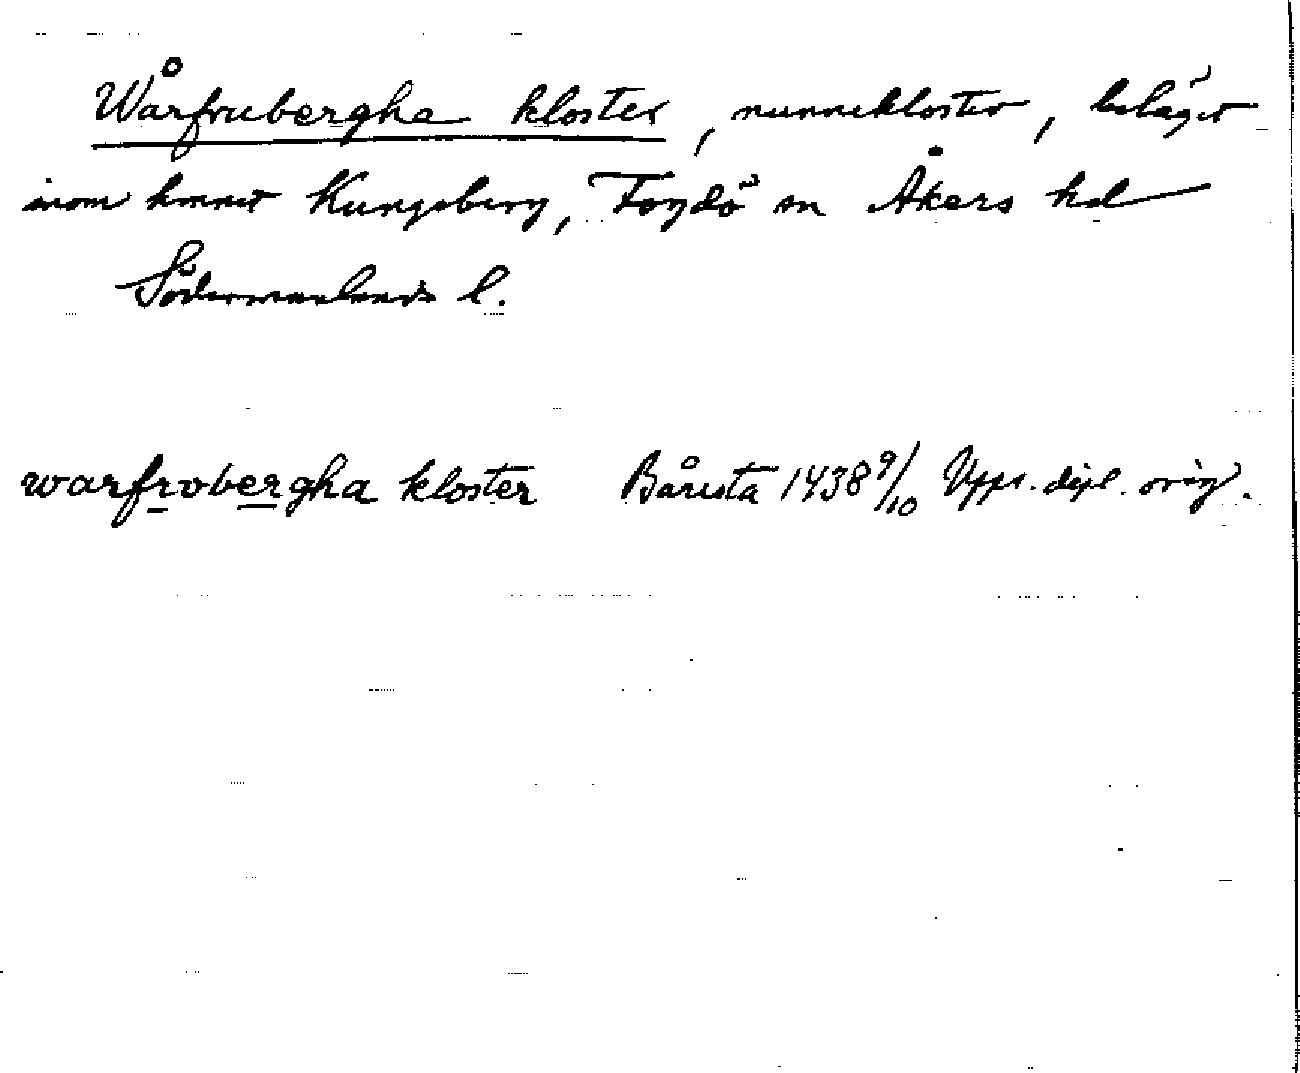 Wårfrubergha kloster, nunnekloster, beläget
inom hmnet Kungsberg, Fogdö sn Åkers hd
Södermanlands l.
warfrobergha kloster Bårsta 1438 9/10 Upps. dipl. orig.